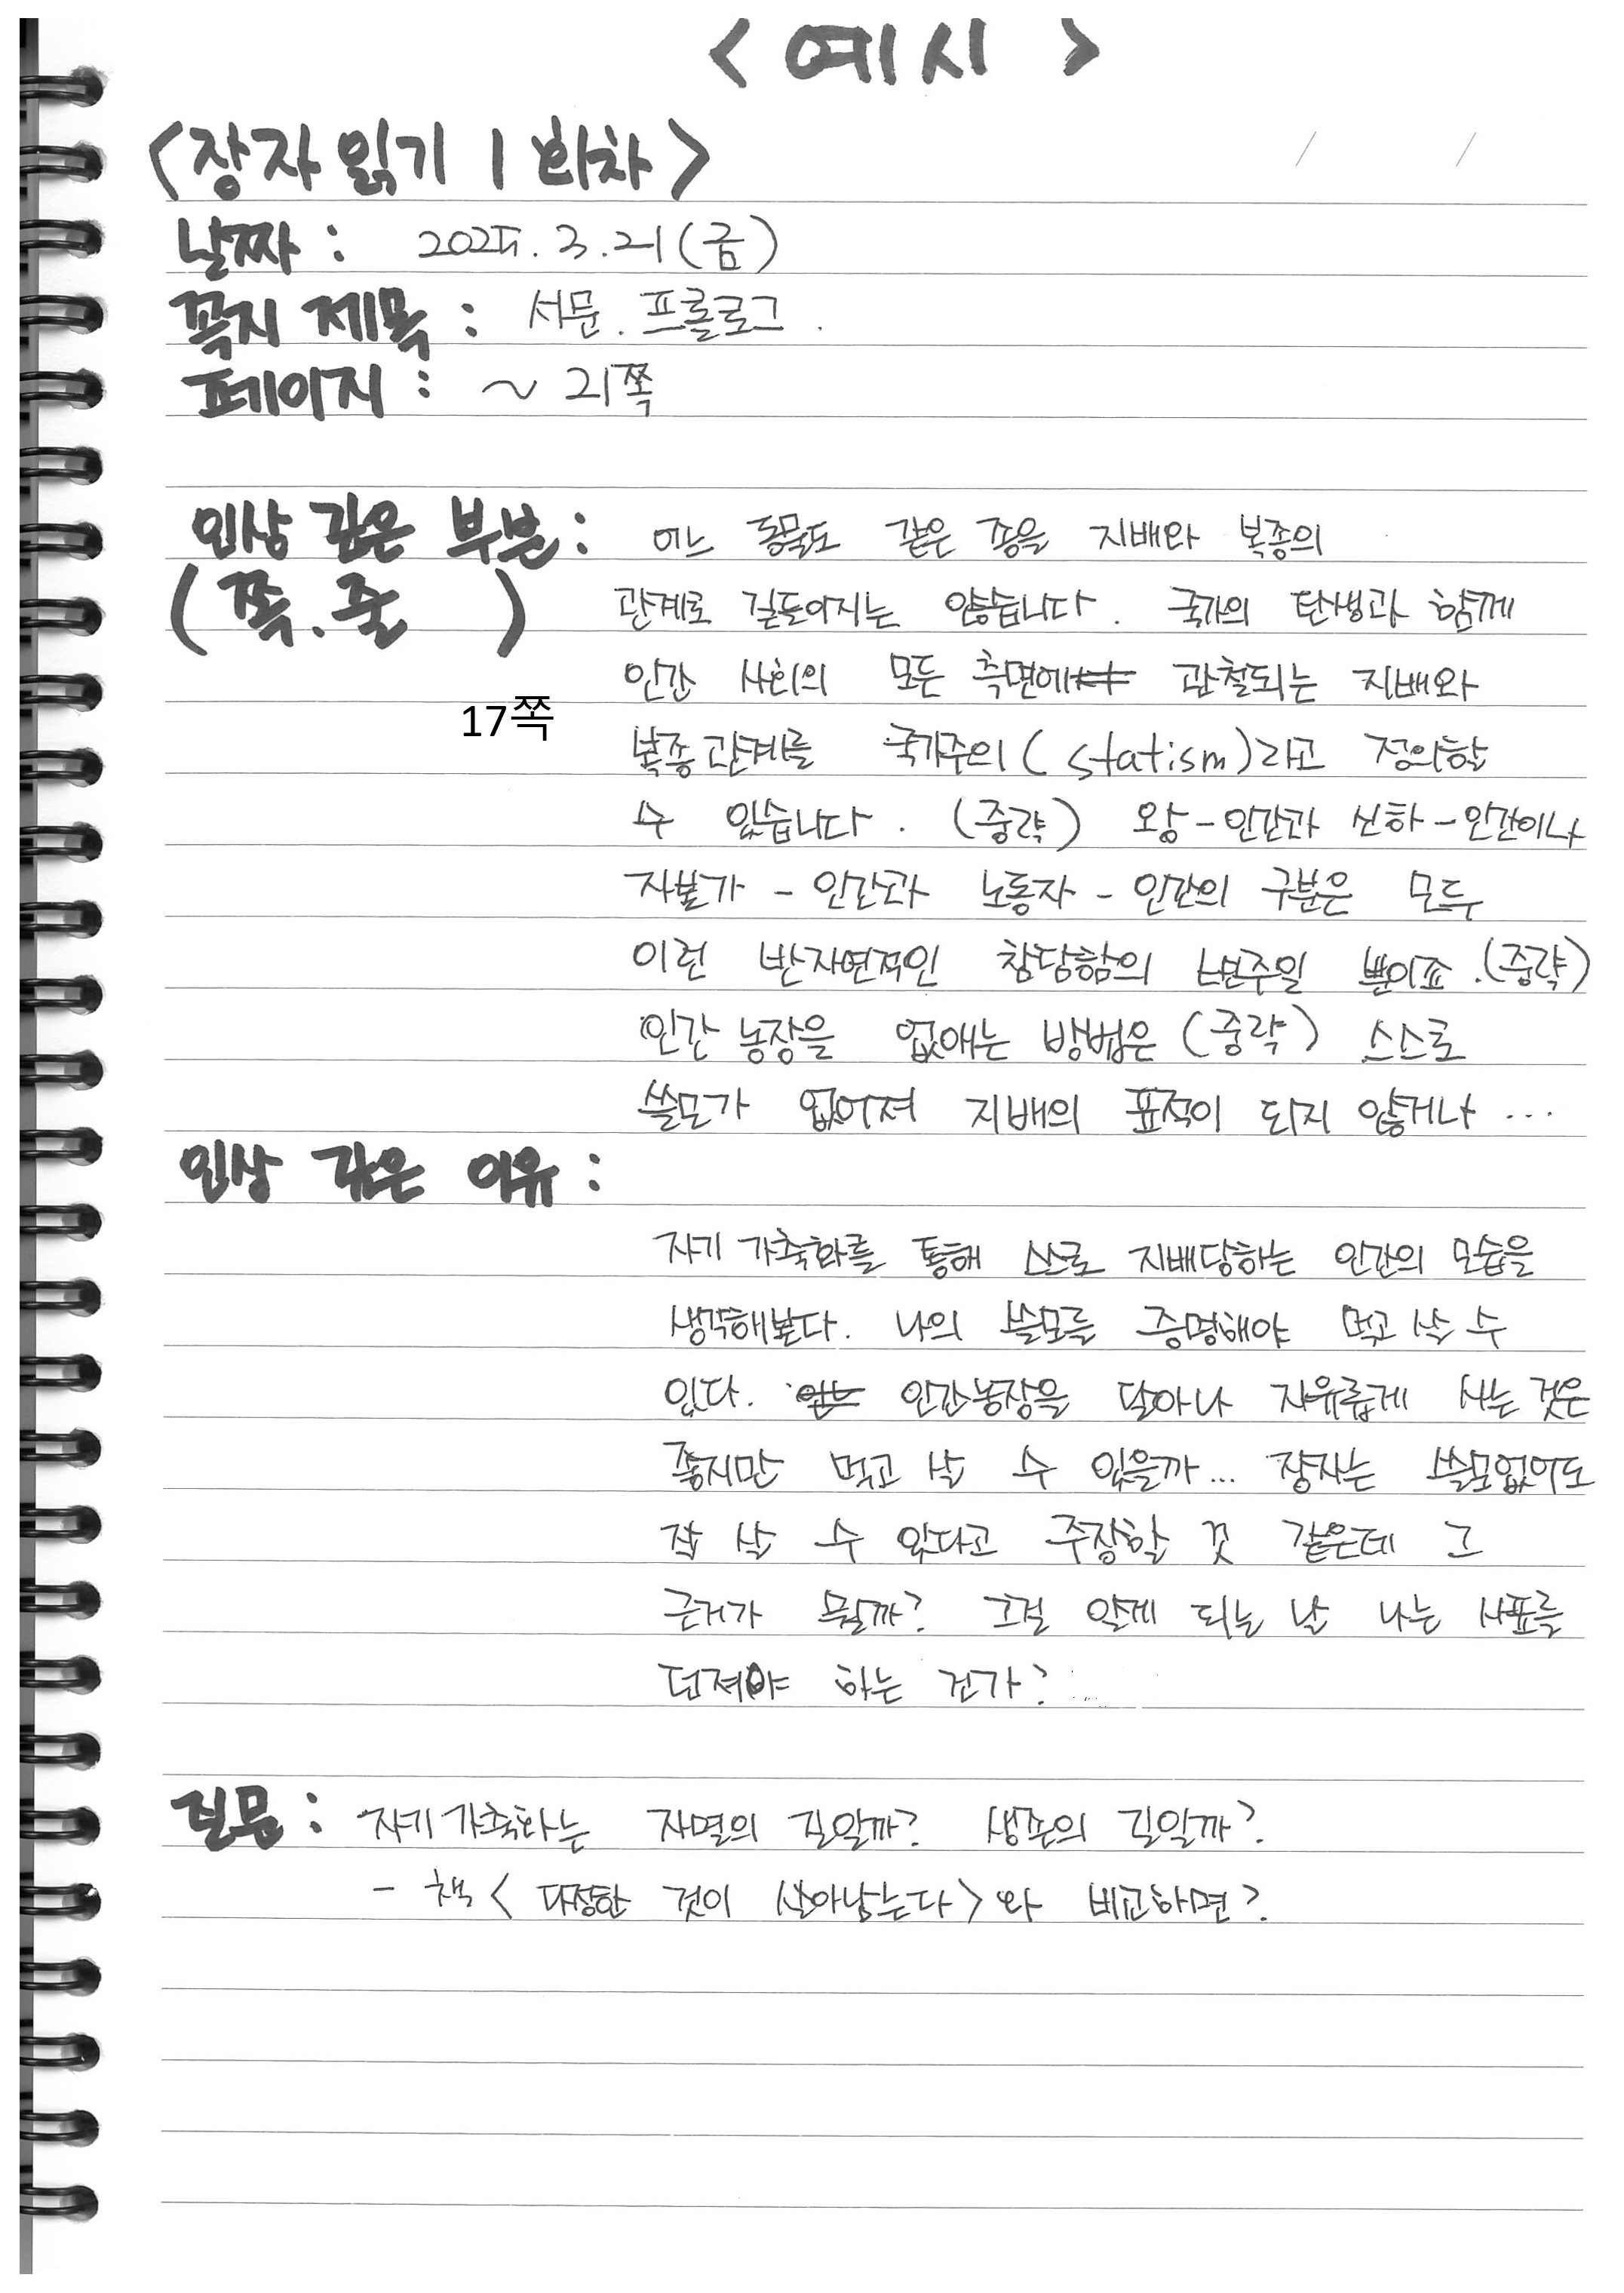 < 예시 >
<장자 읽기 1회차>
날짜 : 2025. 3. 21 (금)
꼭지 제목 : 서문. 프롤로그.
페이지 : ~ 21쪽
인상 깊은 부분 : 어느 동물도 같은 종을 지배와 복종의
(쪽. 줄 ) 관계로 길들이지는 않습니다. 국가의 탄생과 함께
인간 사회의 모든 측면에 관철되는 지배와
17쪽
복종 관계를 국가주의(statism)라고 정의할
수 있습니다. (중략) 왕-인간과 신하-인간이나
자본가-인간과 노동자-인간의 구분은 모두
이런 반자연적인 참담함의 변주일 뿐이죠.(중략)
인간 농장을 없애는 방법은 (중략) 스스로
쓸모가 없어져 지배의 표적이 되지 않거나 ...
인상 깊은 이유 :
자기 가축화를 통해 스스로 지배당하는 인간의 모습을
생각해본다. 나의 쓸모를 증명해야 먹고 살 수
있다. 인간농장을 달아나 자유롭게 사는 것은
좋지만 먹고 살 수 있을까... 장자는 쓸모없어도
잘 살 수 있다고 주장할 것 같은데 그
근거가 뭘까? 그걸 알게 되는 날 나는 사표를
던져야 하는 건가?
질문 : 자기 가축화는 자멸의 길일까? 생존의 길일까?
- 책 <다정한 것이 살아남는다>와 비교하면?